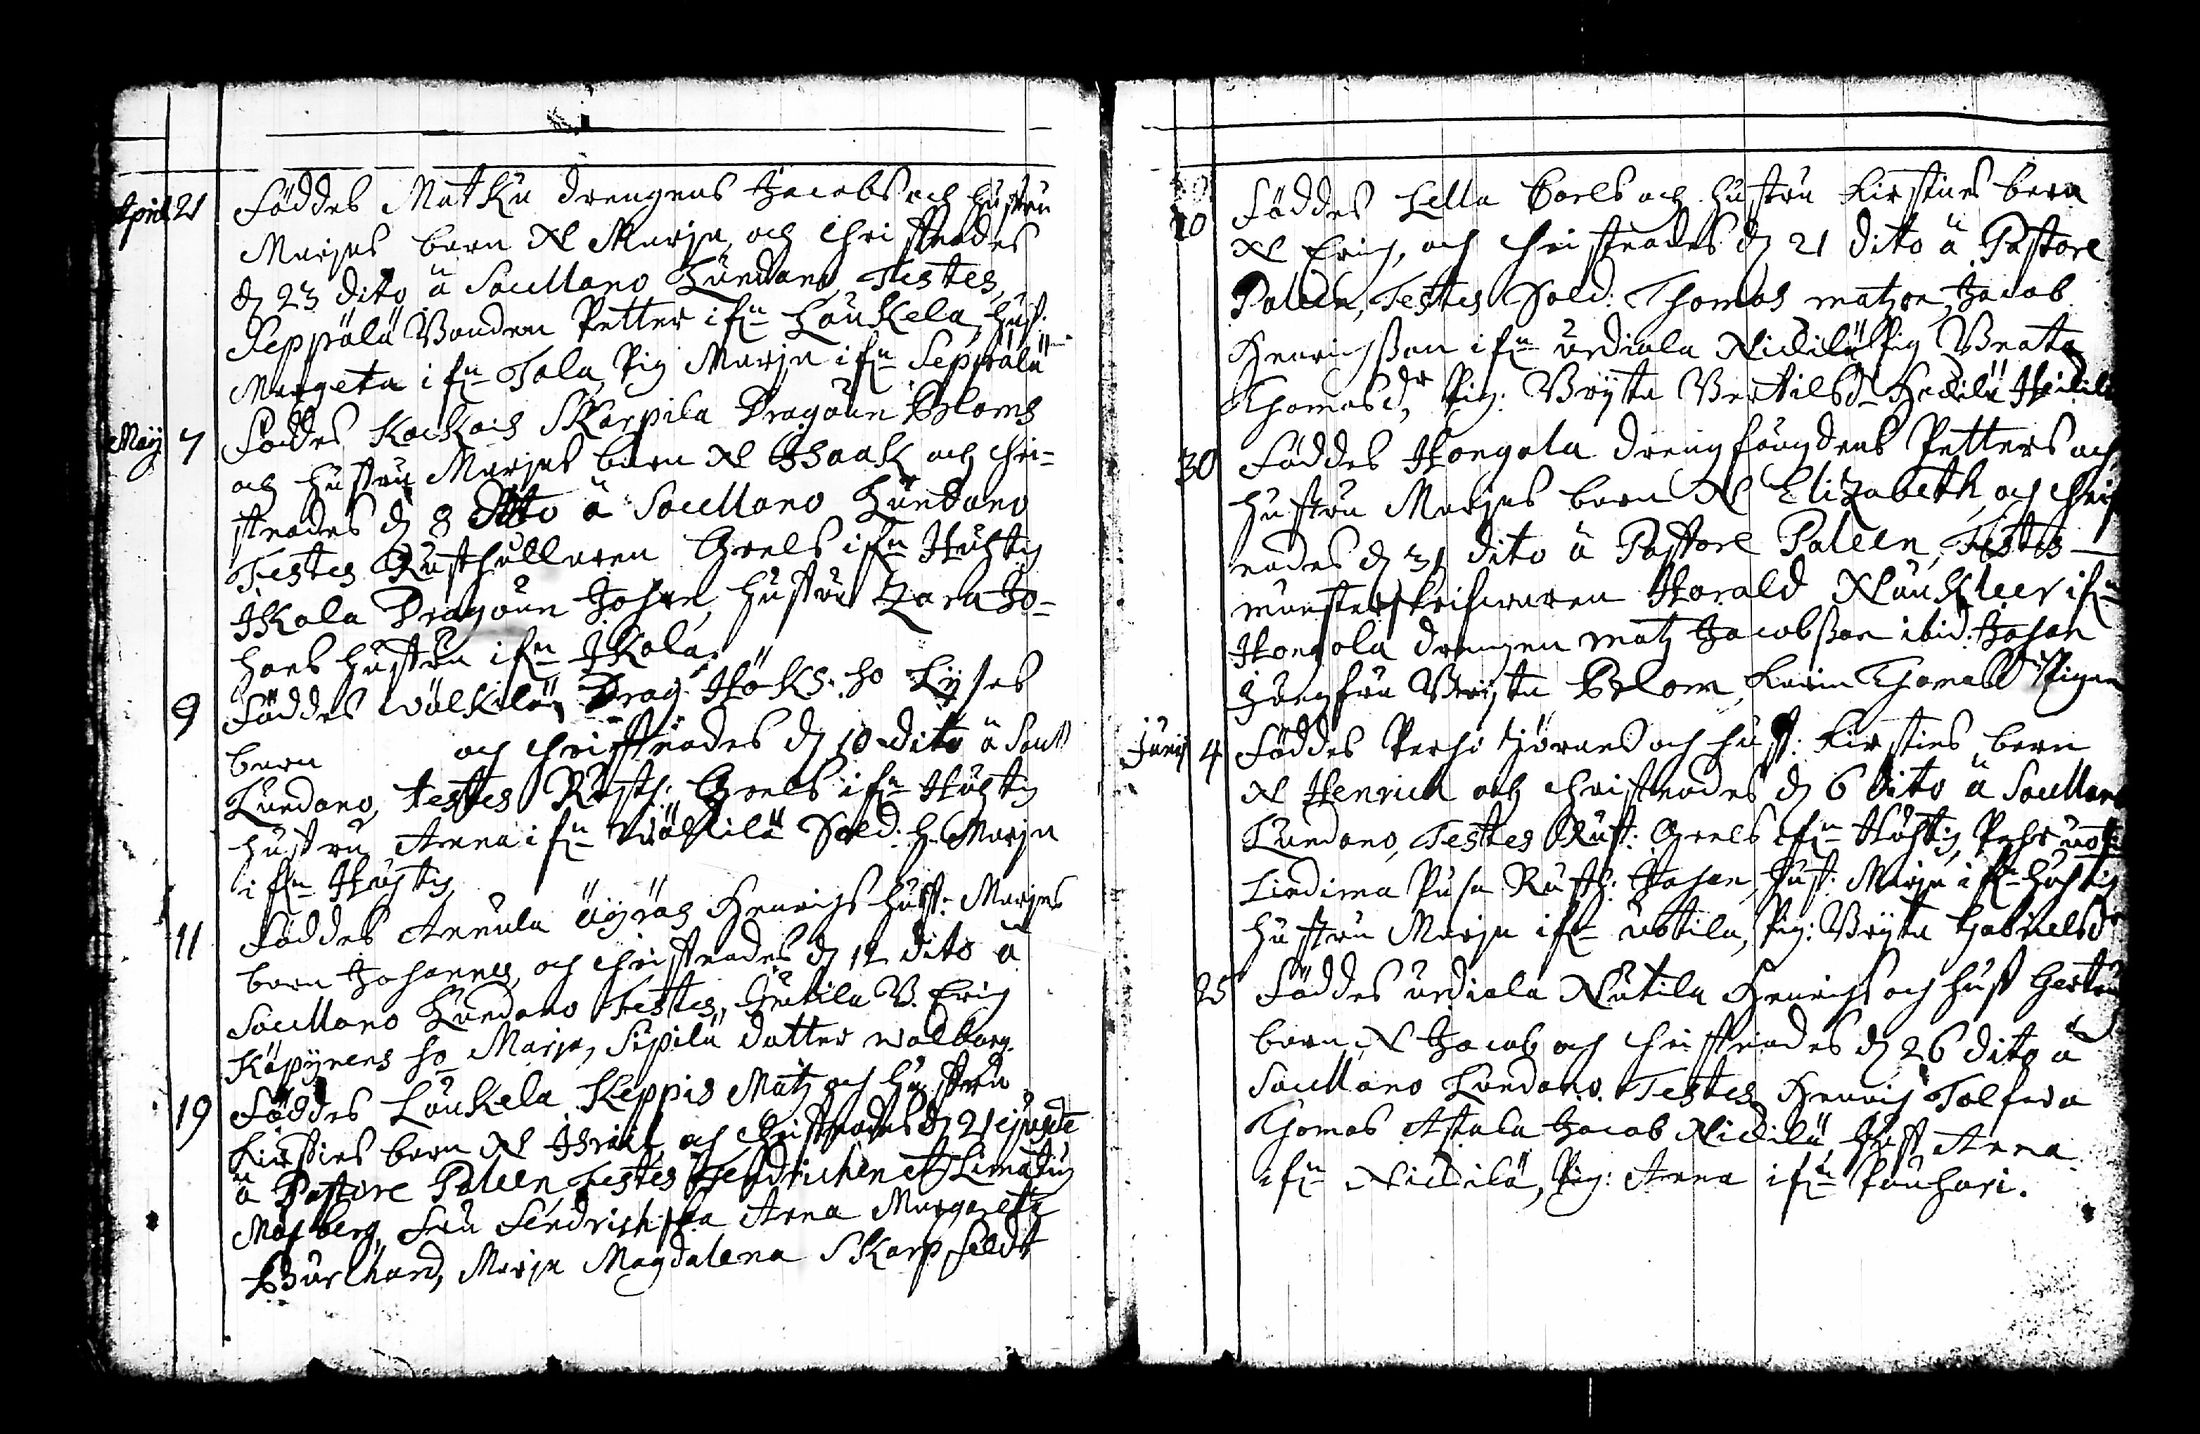 April 21 Föddes Matku drengens Jacobs och hustru
Marjas barn N Marja, och Christnades
d 23 dito á Sacellano Lundano, Testes,
Seppälä Bonden Petter ifrn Laukela, Hust:
Margeta ifrn Tala, Pig Marja ifrn Seppälä
Maij 7 Föddes Kackois Skarpila Dragoun Bloms
och hustru Marjas barn N Isaak och Chri-
stnades d 8 dito á Sacellano Lundano
Testes Rusthållaren Grels ifrn Huhtis
Ikala Dragoun Johan, hustru Zara Jo-
hans hustru ifrn Ikala.
9 Föddes Wälkilä Drag: Höks: ho Lijses
barn och Christnades d 10 dito á Sacell
Lundano, testes Rusth: Grels ifrn Huhtis
hustru Anna ifrn Wälkilä Sold: h. Marja
ifrn Huhtis
11 Föddes Annula Äijräs Henrichs hust: Marjas
barn Johannes, och Christnades d 12 dito á
Sacellano Lundano Testes, Jutila B. Erich
Käpynens ho Marja, Sipilä dotter walborg.
19 Föddes Laukela Keppis Matz och hustru
Kirsties barn N Israel, och Christnades d 21 ejusde
á Pastore Paleen, Testes Fendrichen
Mosberg, Fru Fendrichska Anna Margareta
Burchard, Marja Magdalena Skarpfeldt
20 Föddes Lella Poels och hustru Kirsties barn
N Erich, och Christnades d 21 dito á Pastore
Paleen, Testes Sold: Thomas matzon, Jacob
Henrichsson ifrn urdiala Nickilä Pig Beata
Thomasdr, Pig: Bryta Bertilsd
30 Föddes Hongola drengfougdens Petters och
hustru Marjas barn N Elizabeth, och Christ
nades d 31 dito á Pastore Paleen, Testes
munsterskrifwaren Harald Naukleer ifrn
Hongola drengen matz Jacobsson ibid: Johan
Jungfru Bryta Blom, Karin Thomasd Pigan
Junij 4 Föddes Perhi Jörans och hust: Kirsties barn
N Henrich och Christnades d 6 dito á Sacellano
Lundano, Testes Rust: Grels ifrn Huhtis, Pehr
Liedima Pusa Rusth: Johan, Hust: Marja ifrn Huhtis
hustru Marja ifrn uotila, Pig: Bryta Gabrielsdr
25 Föddes urdiala Nutila Henrichs och hust Gertrud
barn N Jacob och Christnades d 26 dito á
Sacellano Lundano. Testes Henrich Tolfwa
Thomas Astala Jacob Nickilä Hust Anna
ifrn Nickilä, Pig: Anna ifrn Pauhari.